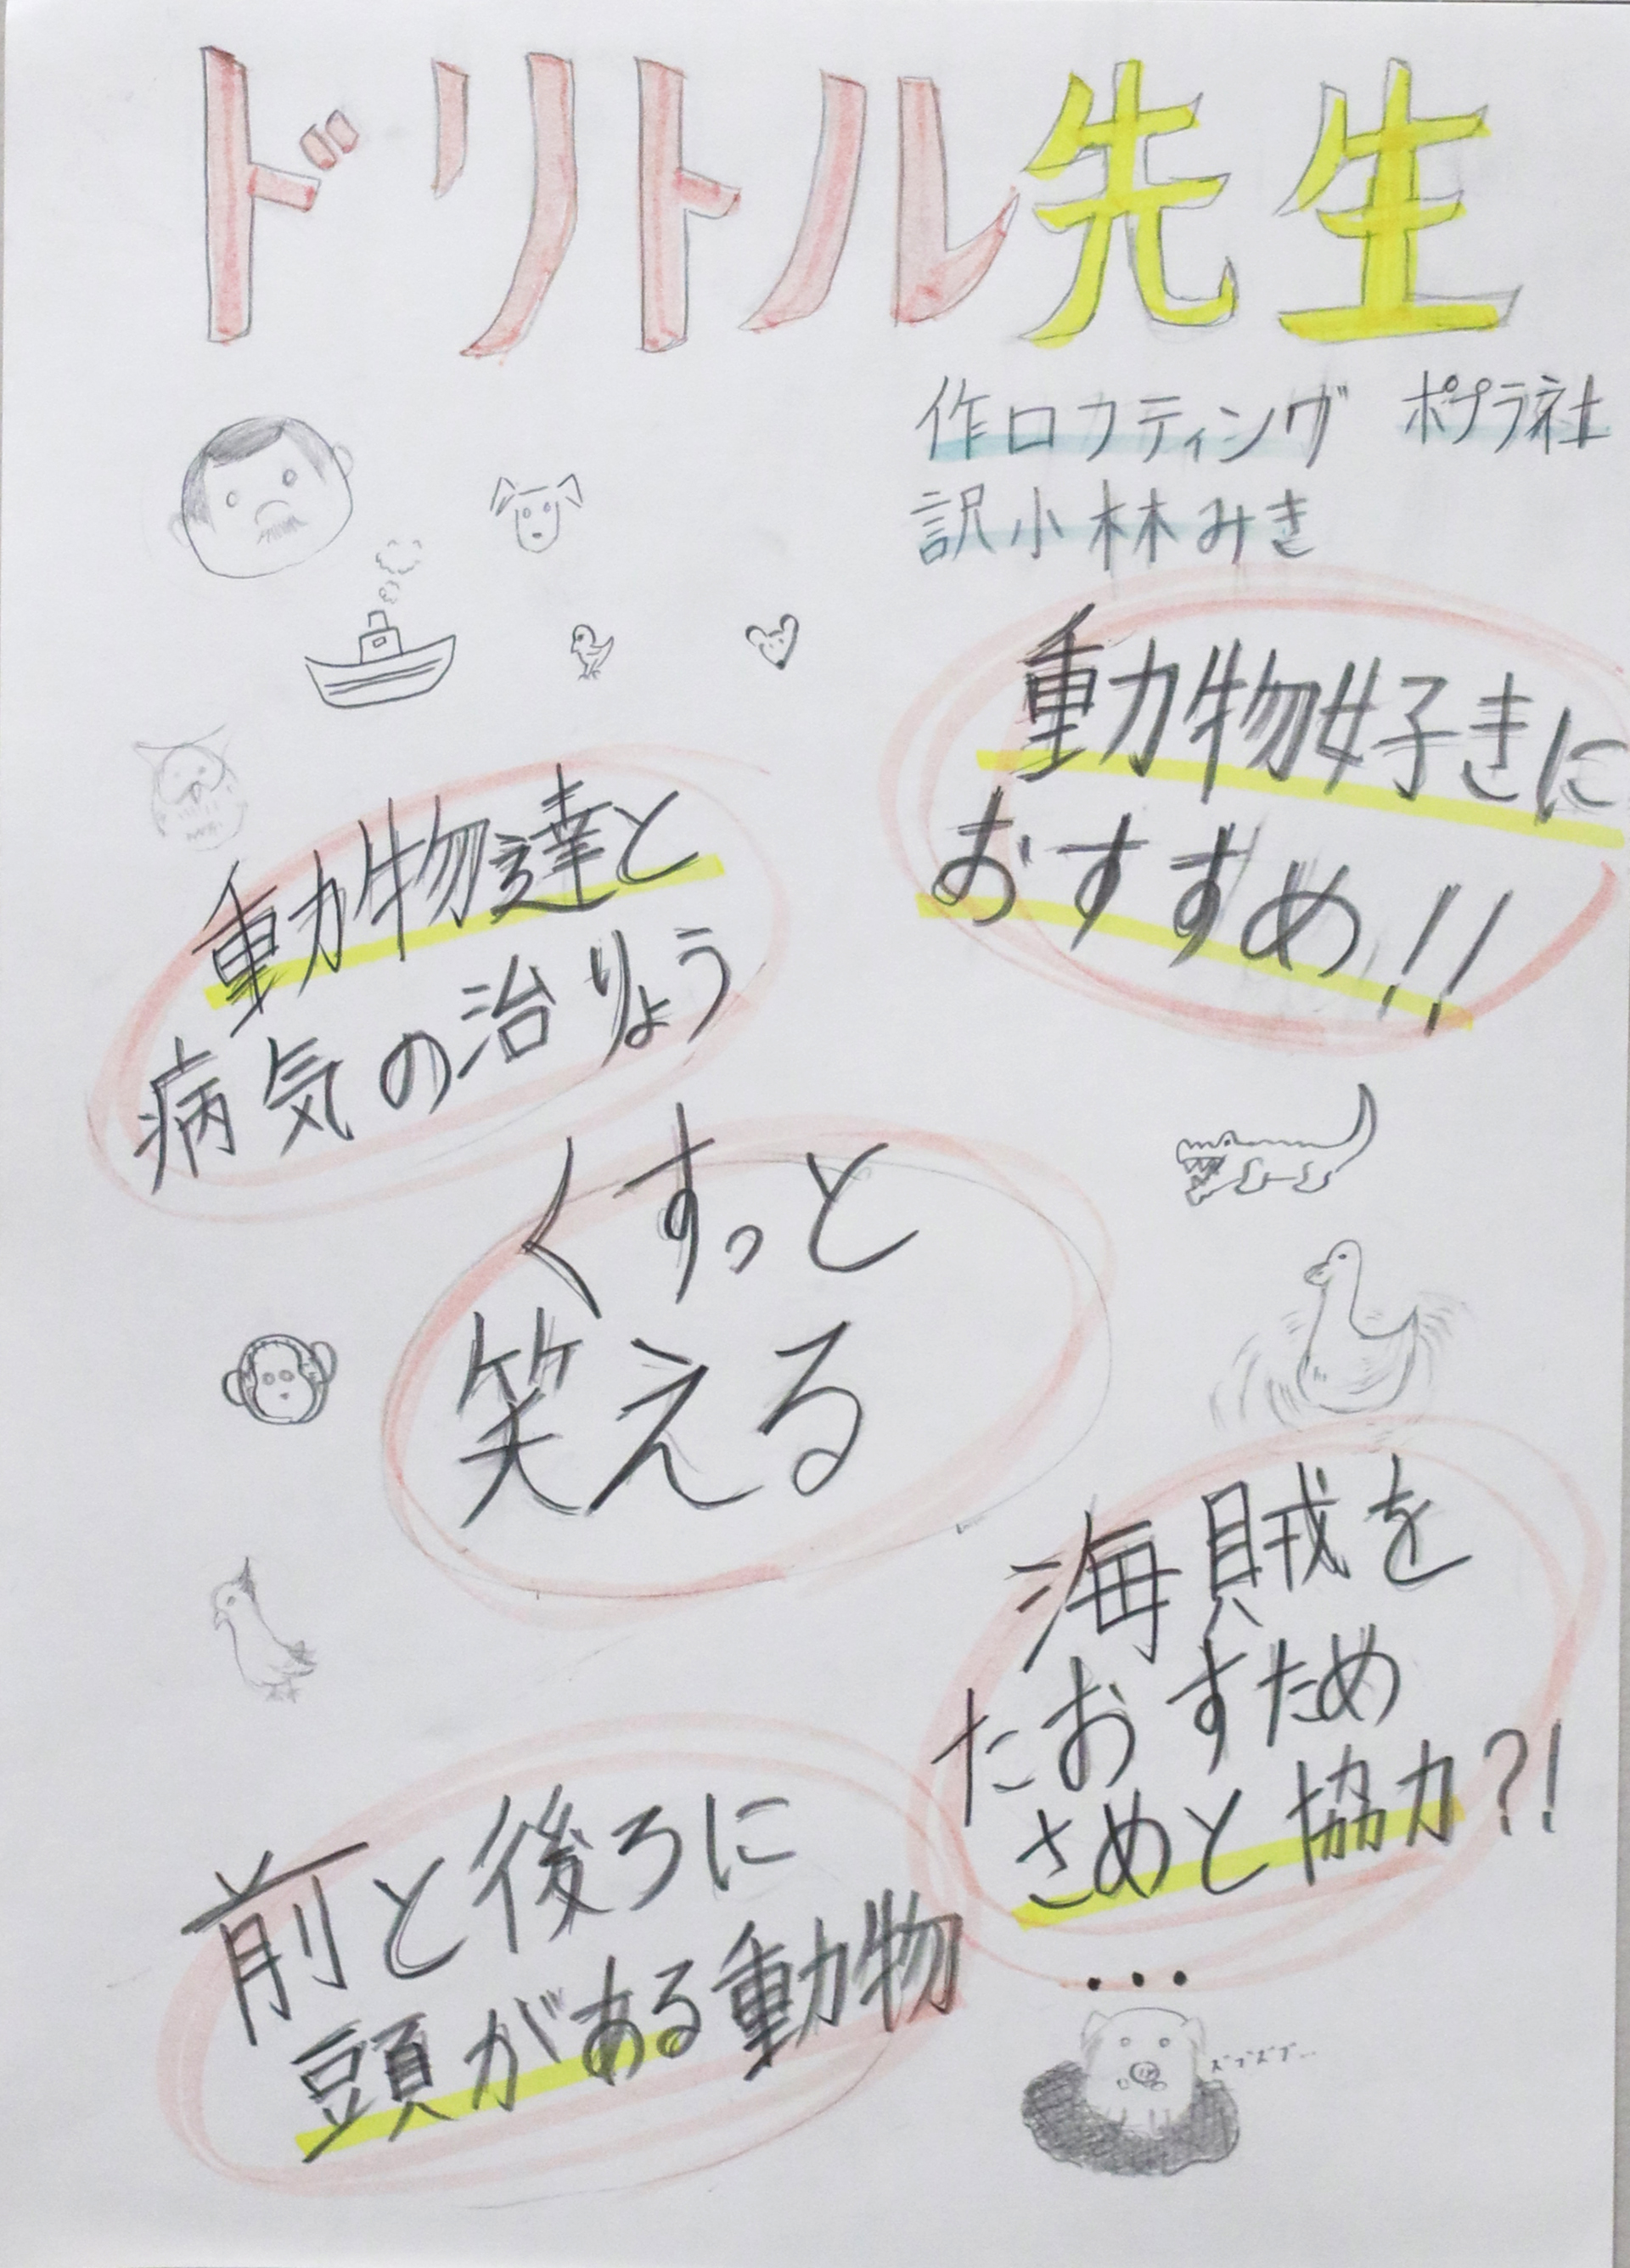 ドリトル先生
作ロフティング ポプラ社
訳小林みき
動物好きに
おすすめ!!
動物達と
病気の治りょう
くすっと
笑える
海賊を
たおすため
さめと協力?!
前と後ろに
頭がある動物
...